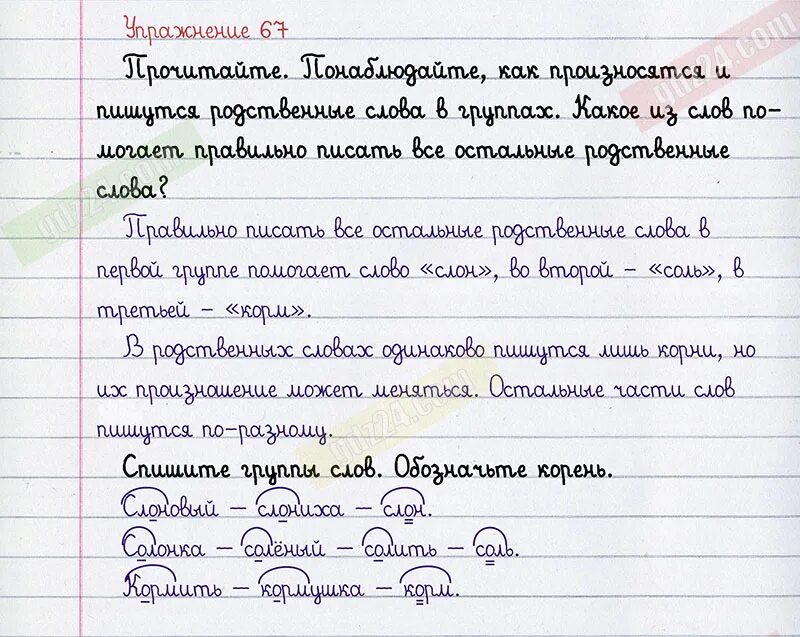 Упражнение 67
Прочитайте. Понаблюдайте, как произносятся и
пишутся родственные слова в группах. Какое из слов по-
могает правильно писать все остальные родственные
слова?
Правильно писать все остальные родственные слова в
первой группе помогает слово «слон», во второй – «соль», в
третьей – «корм».
В родственных словах одинаково пишутся лишь корни, но
их произношение может меняться. Остальные части слов
пишутся по-разному.
Спишите группы слов. Обозначьте корень.
Слоновый – слониха – слон.
Солонка – солёный – солить – соль.
Кормить – кормушка – корм.
gdz24.com
gdz24.com
gdz24.com